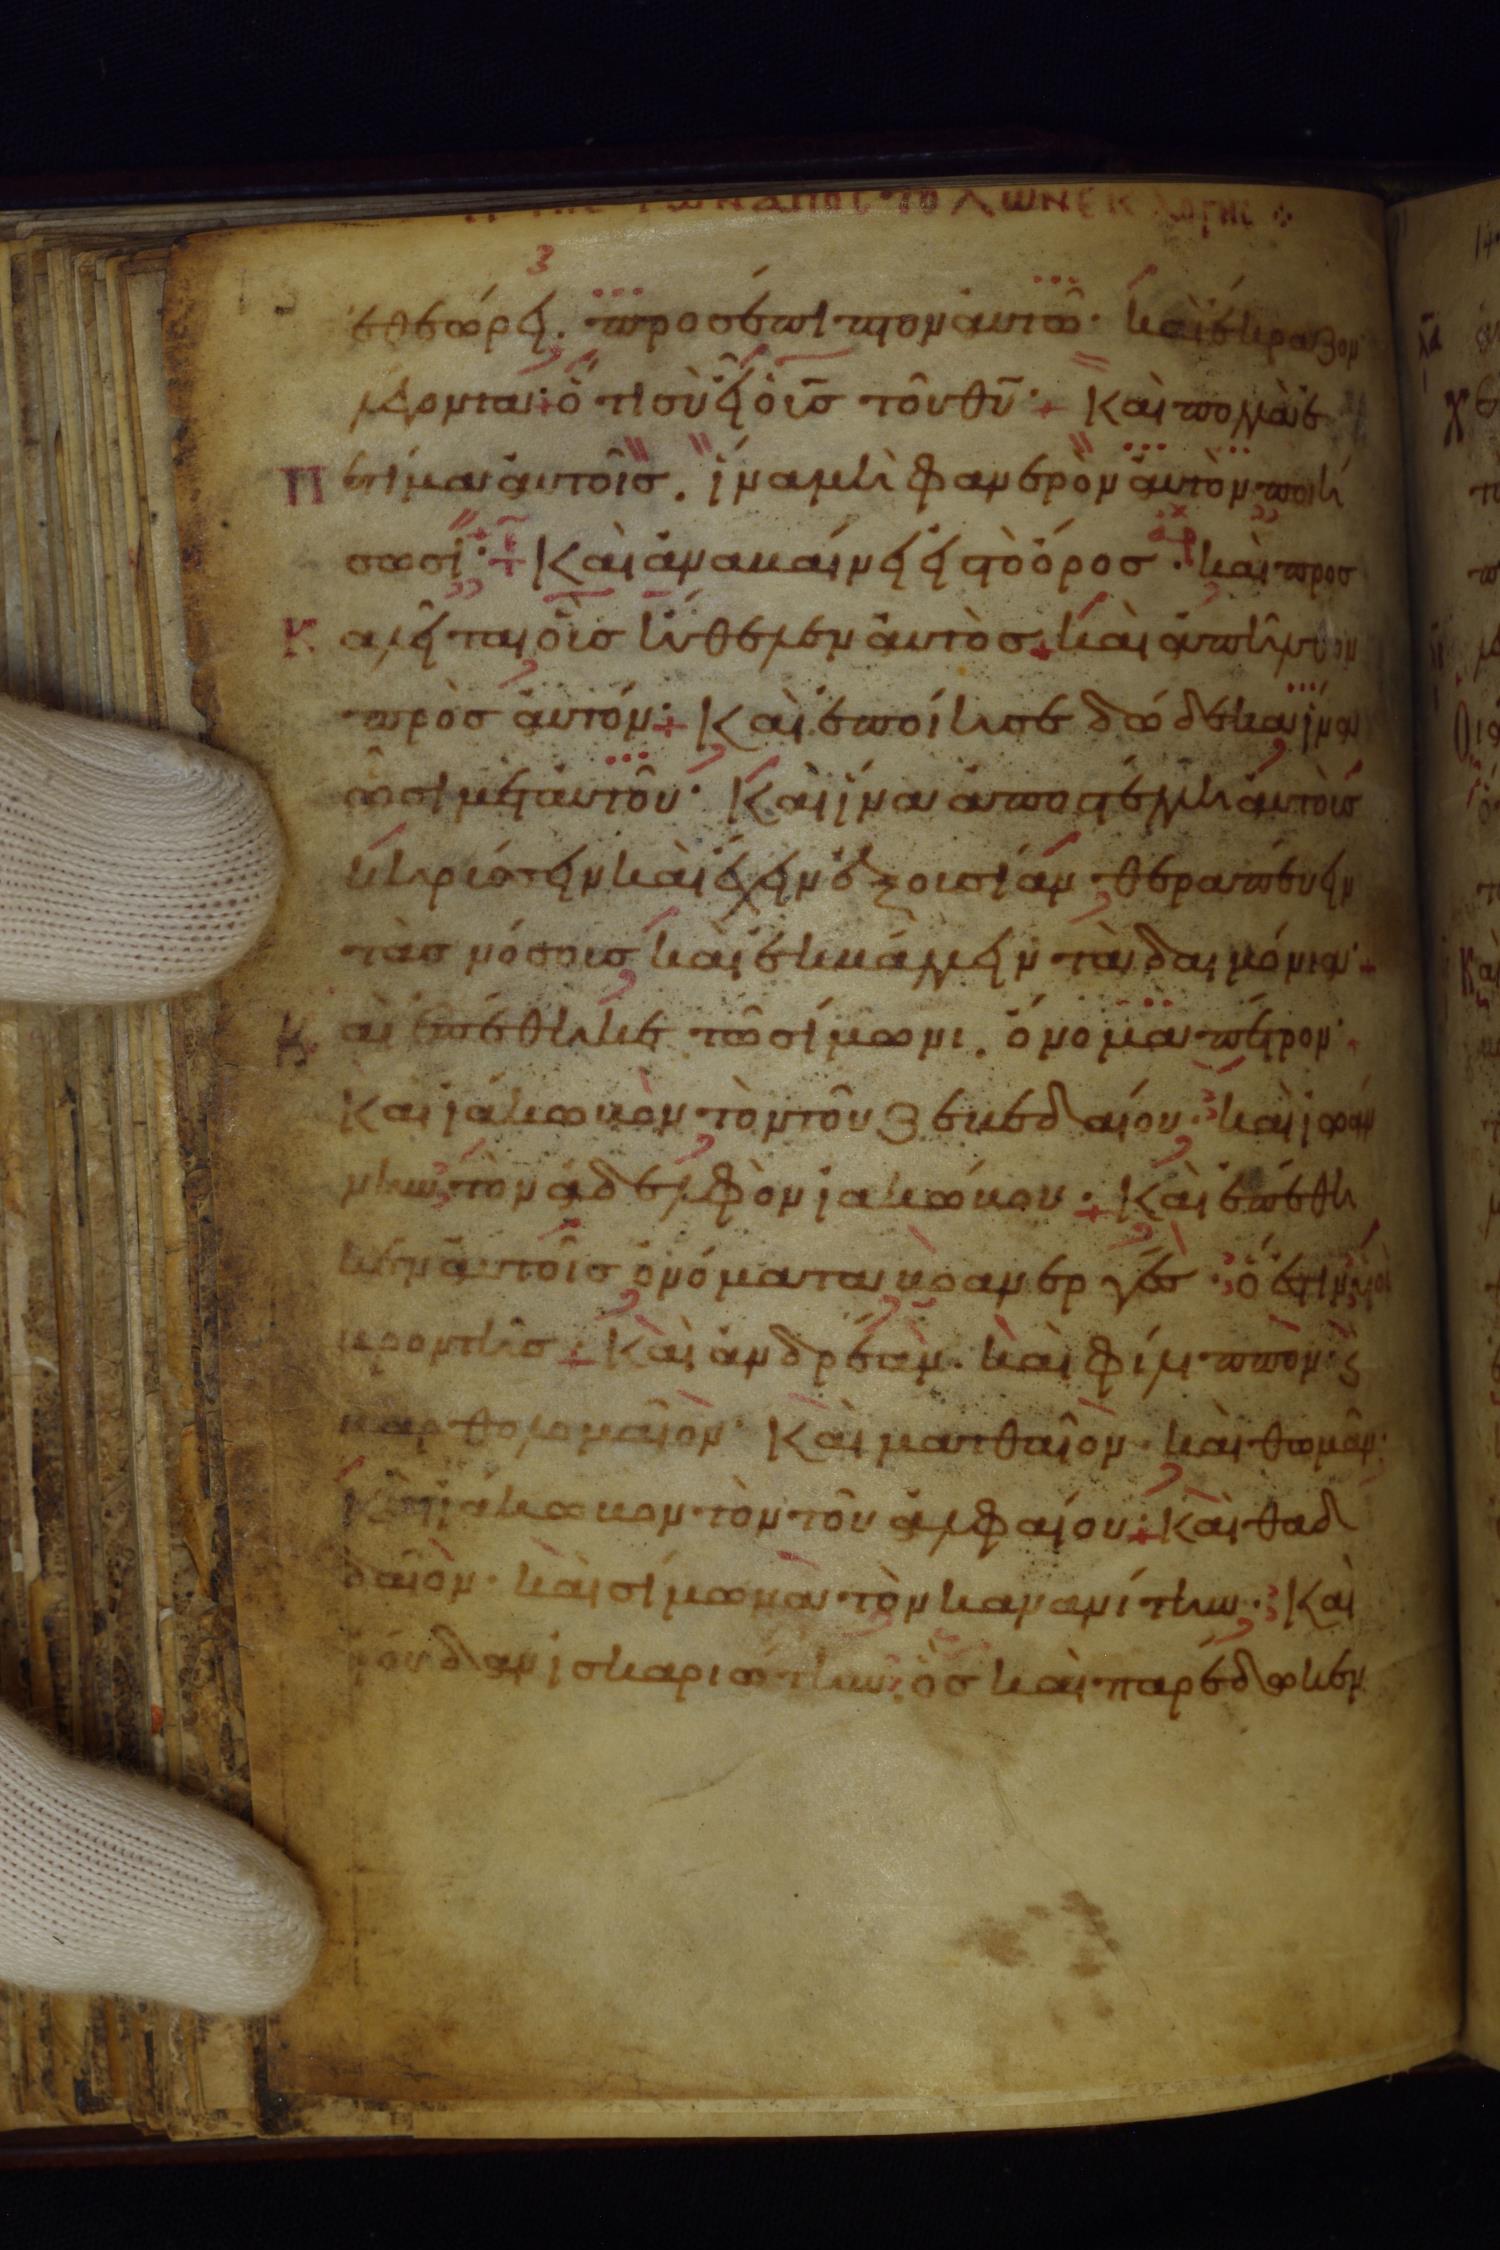 τῶν ἀποστόλων ἐκλογῆς
ἐθεώρει. προσέπιπτον αὐτῶ· καὶ ἔκραζον
λέγοντα· ὅτι σὺ εἶ ὁ υ̅ς̅ τοῦ θ̅υ̅· Καὶ πολλὰ ἐ
Π ἐτίμα αὐτοῖς. ἵνα μὴ φανερὸν αὐτὸν ποιή
σωσι· Καὶ ἀναβαίνει εἰς τὸ ὄρος· καὶ προσ
Κ αλεῖται οὓς ἤθελεν αὐτὸς· καὶ ἀπῆλθον
πρὸς αὐτόν· Καὶ ἐποίησε δώδεκα ἵνα
ὦσι μετ' αὐτοῦ· Καὶ ἵνα ἀποστέλλη αὐτοὺς
κηρύσσειν καὶ ἔχειν ἐξουσίαν θεραπεύειν
τὰς νόσους καὶ ἐκβάλλειν τὰ δαιμόνια·
Κ αὶ ἐπέθηκε τῶ σίμωνι. ὄνομα πέτρον·
Καὶ ἰάκωβον τὸν τοῦ ζεβεδαίου· καὶ ἰωάν
νην τὸν ἀδελφὸν ἰακώβου· Καὶ ἐπέθη
κεν αὐτοῖς ὀνόματα βοανεργές· ὅ ἐστιν υἱοὶ
βροντῆς· Καὶ ἀνδρέαν. καὶ φίλιππον· ϛ
βαρθολομαῖον· Καὶ ματθαῖον· καὶ θωμᾶν·
Καὶ ἰάκωβον τὸν τοῦ ἀλφαίου· Καὶ θαδ
δαῖον· καὶ σίμωνα τὸν κανανίτην· Καὶ
ἰούδαν ἰσκαριώτην· ὃς καὶ παρέδωκεν